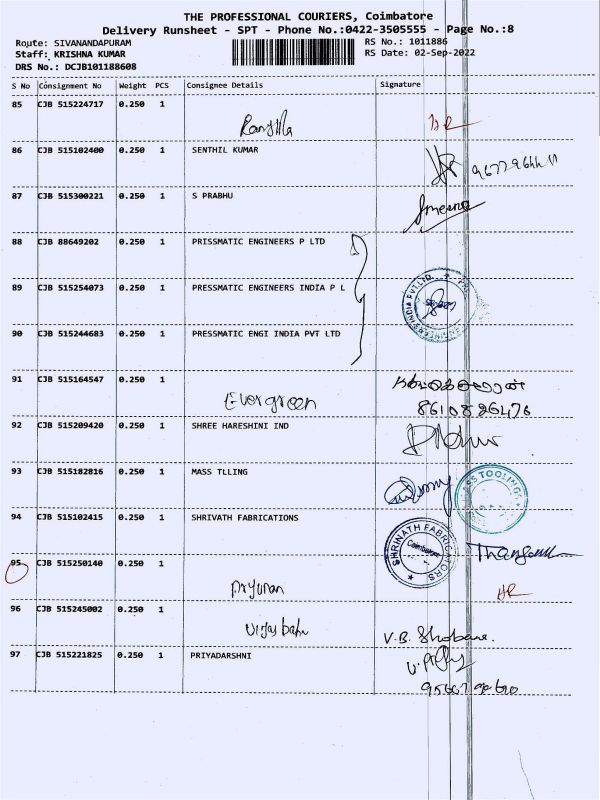 THE PROFESSIONAL COURIERS, Coimbatore
Delivery Runsheet - SPT - Phone No.:0422-3505555 - Page No.:8
Route: SIVANANDAPURAM
RS No.: 1011886
Staff: KRISHNA KUMAR
RS Date: 02-Sep-2022
DRS No.: DCJB101188608
S No Consignment No Weight PCS Consignee Details Signature
85 CJB 515224717 0.250 1
86 CJB 515102400 0.250 1 SENTHIL KUMAR
87 CJB 515300221 0.250 1 S PRABHU
Jmeena
88 CJB 88649202 0.250 1 PRISSMATIC ENGINEERS P LTD
89 CJB 515254073 0.250 1 PRESSMATIC ENGINEERS INDIA P L
INDIA PVT.LTD.
90 CJB 515244683 0.250 1 PRESSMATIC ENGI INDIA PVT LTD
91 CJB 515164547 0.250 1
Evergreen
8610826476
92 CJB 515209420 0.250 1 SHREE HARESHINI IND
93 CJB 515182816 0.250 1 MASS TLLING
MASS TOOLINGS
94 CJB 515102415 0.250 1 SHRIVATH FABRICATIONS
SHRINATH FABRICATORS
Coimbatore
95 CJB 515250140 0.250 1
HR
96 CJB 515245002 0.250 1
Vijay babu V.B. Shobana.
97 CJB 515221825 0.250 1 PRIYADARSHNI